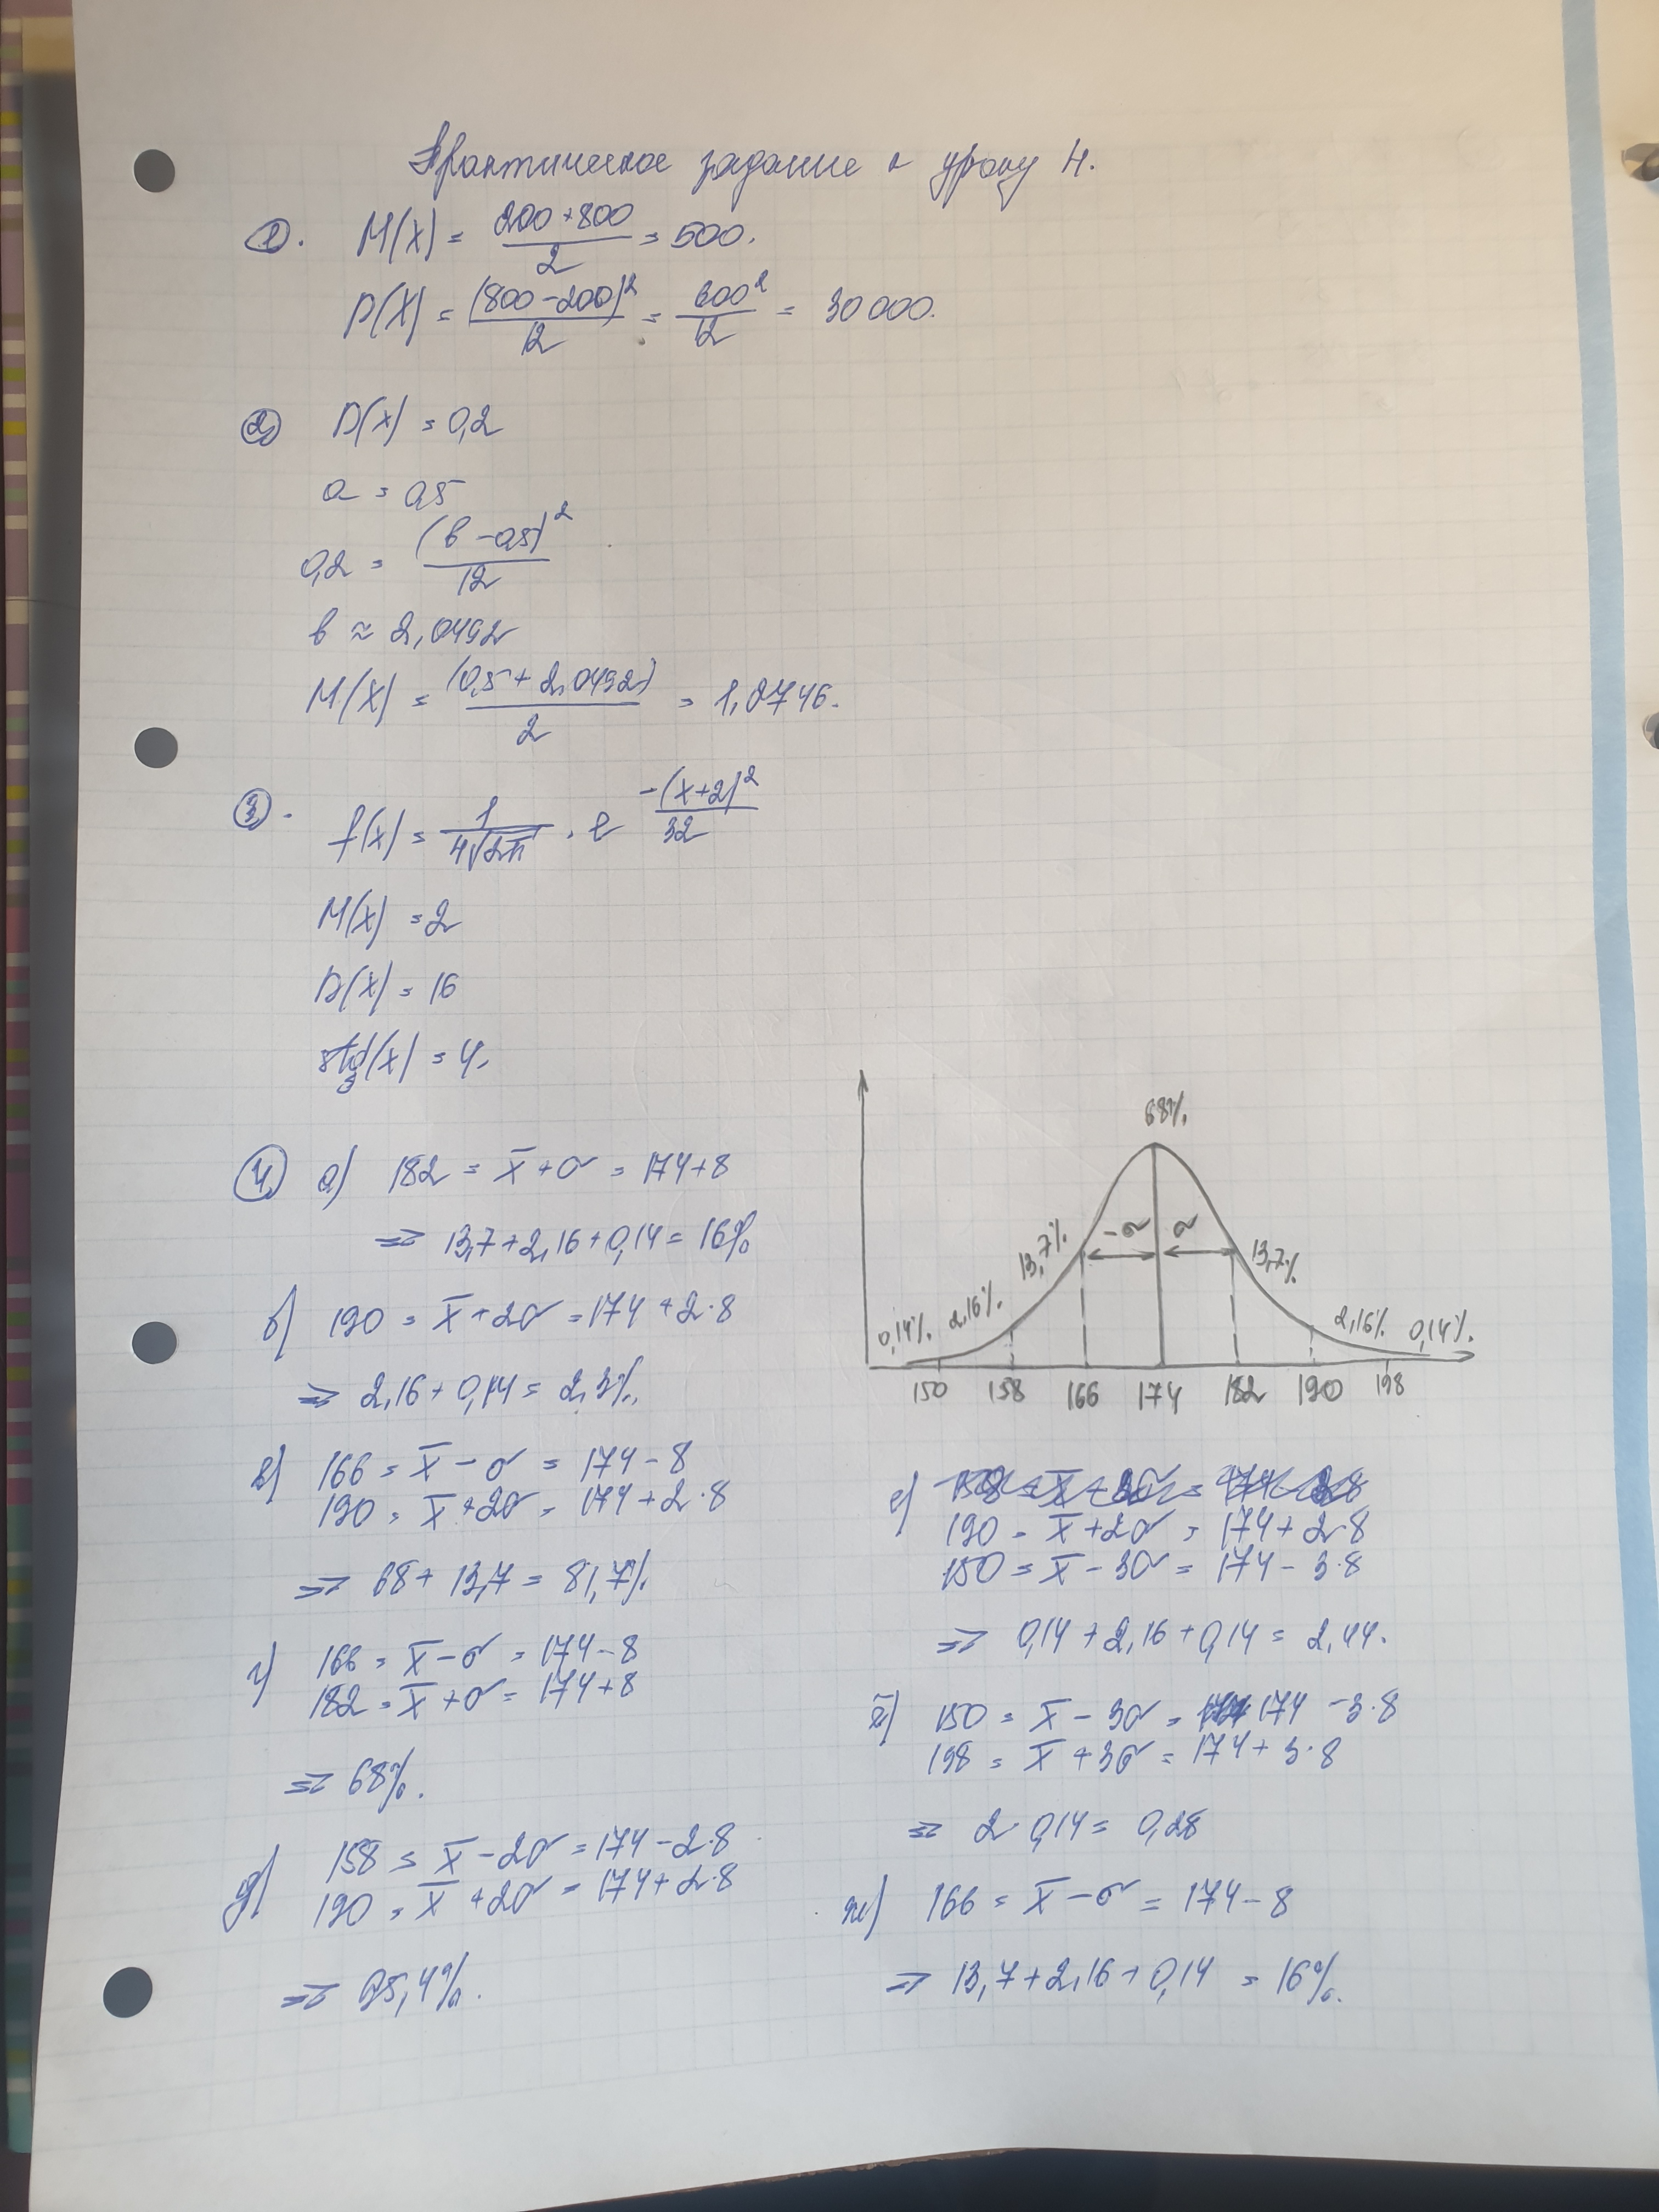 Практическое задание к уроку 4.
1). M(X) = (200+800)/2 = 500.
D(X) = (800-200)²/12 = 600²/12 = 30000.
2) D(X) = 0,2
a = 0,5
0,2 = (b - 0,5)²/12
b ≈ 2,0492
M(X) = (0,5 + 2,0492)/2 = 1,2746.
3). f(x) = 1/(4√2π) · e^(-(x+2)²/32)
M(X) = 2
D(X) = 16
std(x) = 4.
4) а) 182 = x̄ + σ = 174+8
=> 13,7+2,16+0,14 = 16%
б) 190 = x̄ + 2σ = 174 + 2·8
=> 2,16 + 0,14 = 2,3%.
в) 166 = x̄ - σ = 174 - 8
190 = x̄ + 2σ = 174 + 2·8
=> 68 + 13,7 = 81,7%
г) 166 = x̄ - σ = 174-8
182 = x̄ + σ = 174+8
=> 68%.
д) 158 = x̄ - 2σ = 174-2·8
190 = x̄ + 2σ = 174+2·8
=> 95,4%.
68%
13,7% -σ σ 13,7%
0,14% 2,16% 2,16% 0,14%.
150 158 166 174 182 190 198
е)
190 = x̄ + 2σ = 174+2·8
150 = x̄ - 3σ = 174 - 3·8
=> 0,14 + 2,16 + 0,14 = 2,44.
ё) 150 = x̄ - 3σ = 174 - 3·8
198 = x̄ + 3σ = 174 + 3·8
=> 2·0,14 = 0,28
ж) 166 = x̄ - σ = 174 - 8
=> 13,7+2,16+0,14 = 16%.